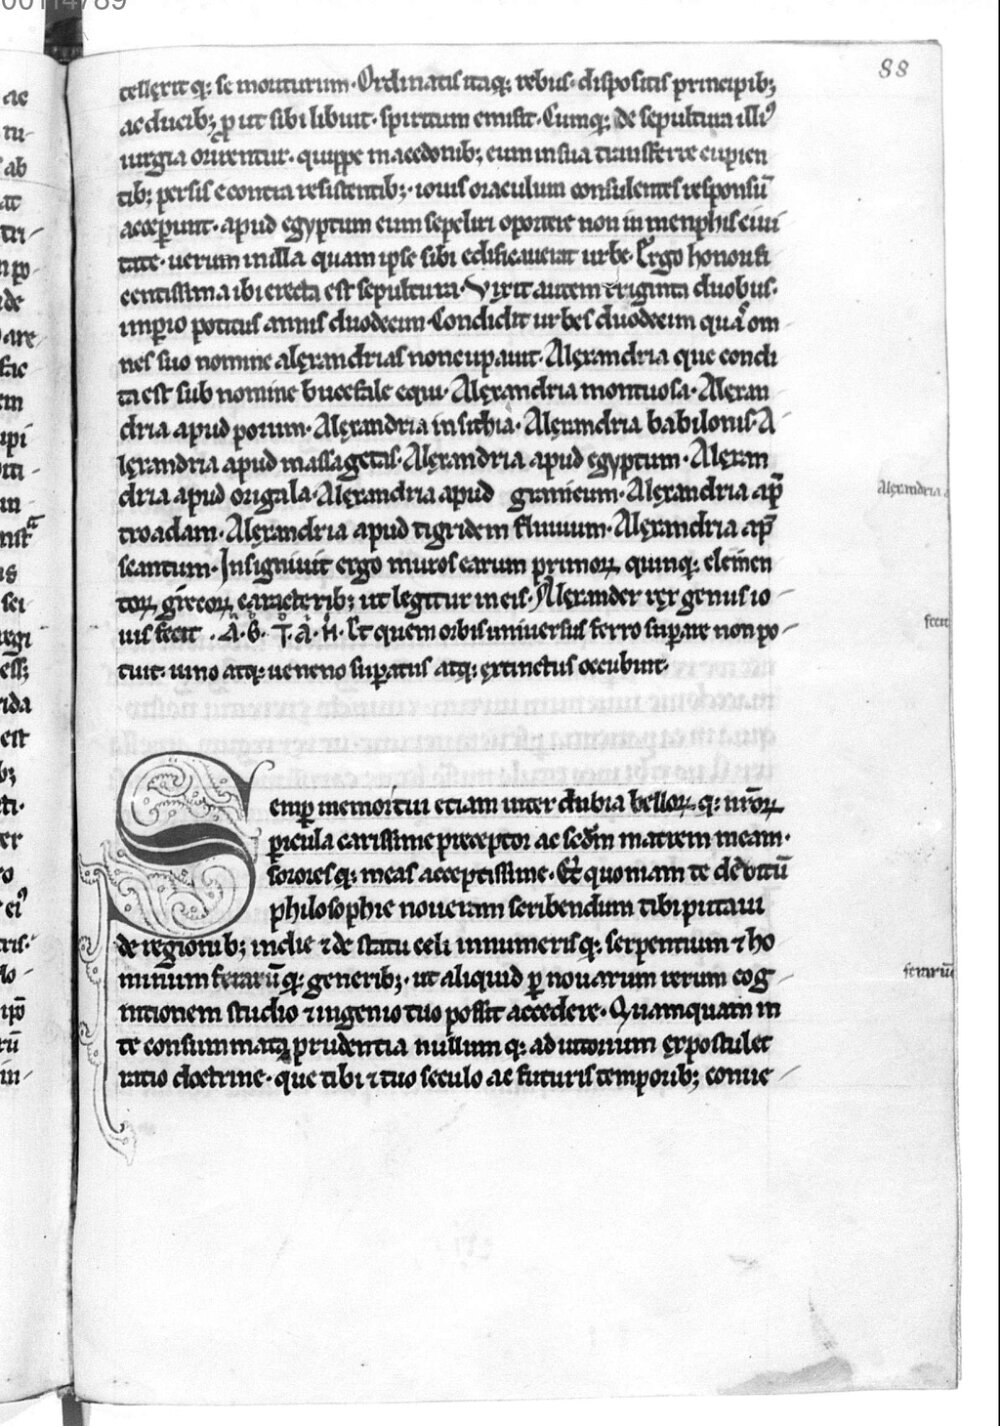 88
cellerit q; se moriturum. Ordinatis itaq; rebus. dispositis principib;
ac ducib; ꝓ ut sibi libuit. spiritum emisit. Cumq; de sepultura illiꝰ
iurgia orirentur. quippe macedonib; eum in sua transferre cupien
tib; persis econtra resistentib;. iouis oraculum consulentes responsū
acceꝑunt. apud egyptum eum sepeliri oportere non in menphis ciui
tate. uerum in illa quam ipse sibi edificauerat urbe. Ergo honorifi
centissima ibi erecta est sepultura. Vixit autem triginta duobus.
imꝑio potitus annis duodecim. Condidit urbes duodecim quas om
nes suo nomine alęxandrias noncupauit. Alęxandria que condi
ta est sub nomine bucefale equi. Alęxandria montuosa. Alęxan
dria apud porum. Alęxandria in sithia. Alęxandria babilonis. A
lęxandria apud massagetas. Alęxandria apud egyptum. Alęxan
dria apud origala. Alęxandria apud granicum. Alęxandria ap̄
troadam. Alęxandria apud tigridem fluuium. Alęxandria ap̄
scantum. Insigniuit ergo muros earum primoꝝ quinq; elemen
toꝝ grecoꝝ caracterib; ut legitur in eis. Alęxander rex genus io
uis fecit . A. B. Γ. Δ. H. Et quem orbis uniuersus ferro suꝑare non po
tuit. uino atq; ueneno suꝑatus atq; extinctus occubuit.
Semꝑ memor tui etiam inter dubia belloꝝ q; nr̄oꝝ
ꝑicula carissime preceptor ac scdm matrem meam.
sorores q; meas acceptissime. Et quoniam te deditū
philosophie noueram scribendum tibi putaui
de regionib; indie ⁊ de statu celi innumeris q; serpentium ⁊ ho
minum ferarū q; generib;. ut aliquid ꝑ nouarum rerum cog
nitionem studio ⁊ ingenio tuo possit accedere. Quamquam in
te consummata prudentia nullum q; adiutorium expostulet
ratio doctrine. que tibi ⁊ tuo seculo ac futuris temporib; conue
Alexandria
fecit
ferarū